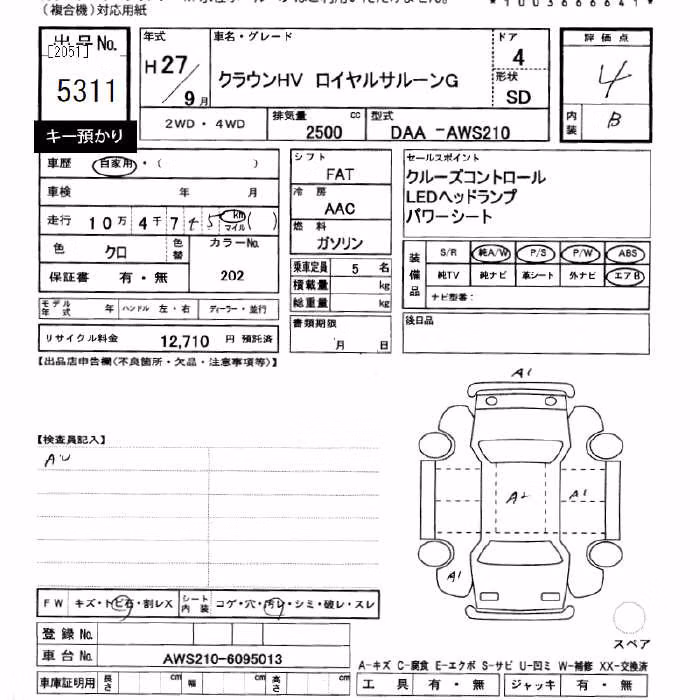 (複合機)対応用紙
*1003666641*
出品No.
[2051]
5311
キー預かり
年式
H27/9月
車名・グレード
クラウンHV ロイヤルサルーンG
ドア
4
形状
SD
評価点
4
内装
B
2WD・4WD
排気量
2500 cc
型式
DAA -AWS210
車歴
自家用・( )
車検 年 月
走行 10万4千7 km マイル ( )
色 クロ
色替
カラーNo.
202
保証書 有・無
モデル年式 年 ハンドル 左・右 ディーラー・並行
リサイクル料金 12,710 円 預託済
シフト
FAT
冷房
AAC
燃料
ガソリン
乗車定員 5 名
積載量 kg
総重量 kg
書類期限
月 日
セールスポイント
クルーズコントロール
LEDヘッドランプ
パワーシート
装備品
S/R 純A/W P/S P/W ABS
純TV 純ナビ 革シート 外ナビ エアB
ナビ型番:
後日品
【出品店申告欄(不良箇所・欠品・注意事項等)】
【検査員記入】
A1
A2
A1
A1
FW キズ・トビ石・割レX シート内装 コゲ・穴・汚レ・シミ・破レ・スレ
スペア
登録No.
車台No. AWS210-6095013
A-キズ C-腐食 E-エクボ S-サビ U-凹ミ W-補修 XX-交換済
車庫証明用 長さ cm 幅 cm 高さ cm
工具 有・無 ジャッキ 有・無